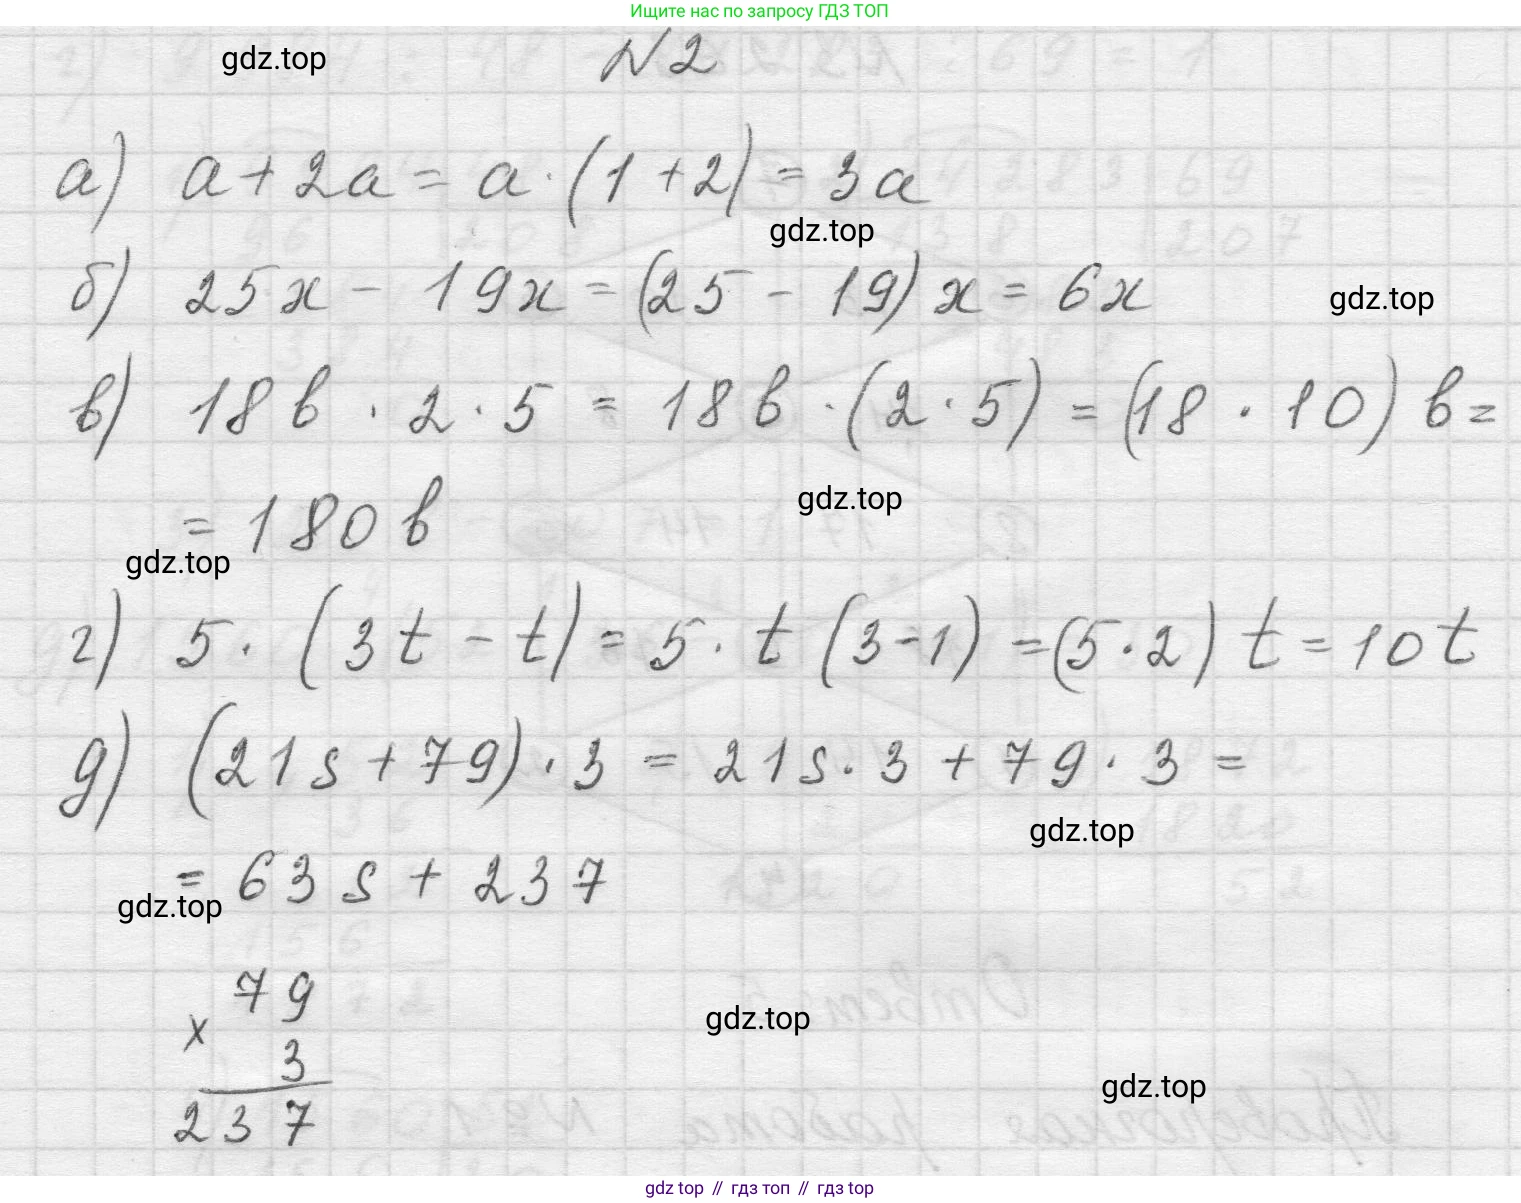 Ищите нас по запросу ГДЗ ТОП
gdz.top
N2
а) a + 2a = a · (1 + 2) = 3a
gdz.top
б) 25x - 19x = (25 - 19) x = 6x
gdz.top
в) 18b · 2 · 5 = 18b · (2 · 5) = (18 · 10) b =
= 180b
gdz.top
gdz.top
г) 5 · (3t - t) = 5 · t (3-1) = (5 · 2) t = 10t
д) (21s + 79) · 3 = 21s · 3 + 79 · 3 =
gdz.top
= 63s + 237
gdz.top
79
×
3
237
gdz.top
gdz.top
gdz top // гдз топ // гдз top